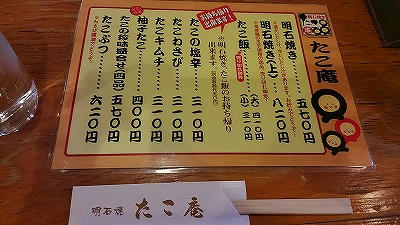 明石焼き
たこ庵
明石焼き 五七〇円
明石焼き(上) 八二〇円
たこ飯 (大) 四一〇円
(小) 三〇〇円
お持ち帰り
出来ます!
※明石焼き、たこ飯のお持ち帰り
出来ます。
たこの塩辛 三一〇円
たこわさび 三一〇円
たこキムチ 三一〇円
柚子たこ 四〇〇円
たこの珍味盛合せ(四品) 五七〇円
たこぶつ 六二〇円
明石焼 たこ庵